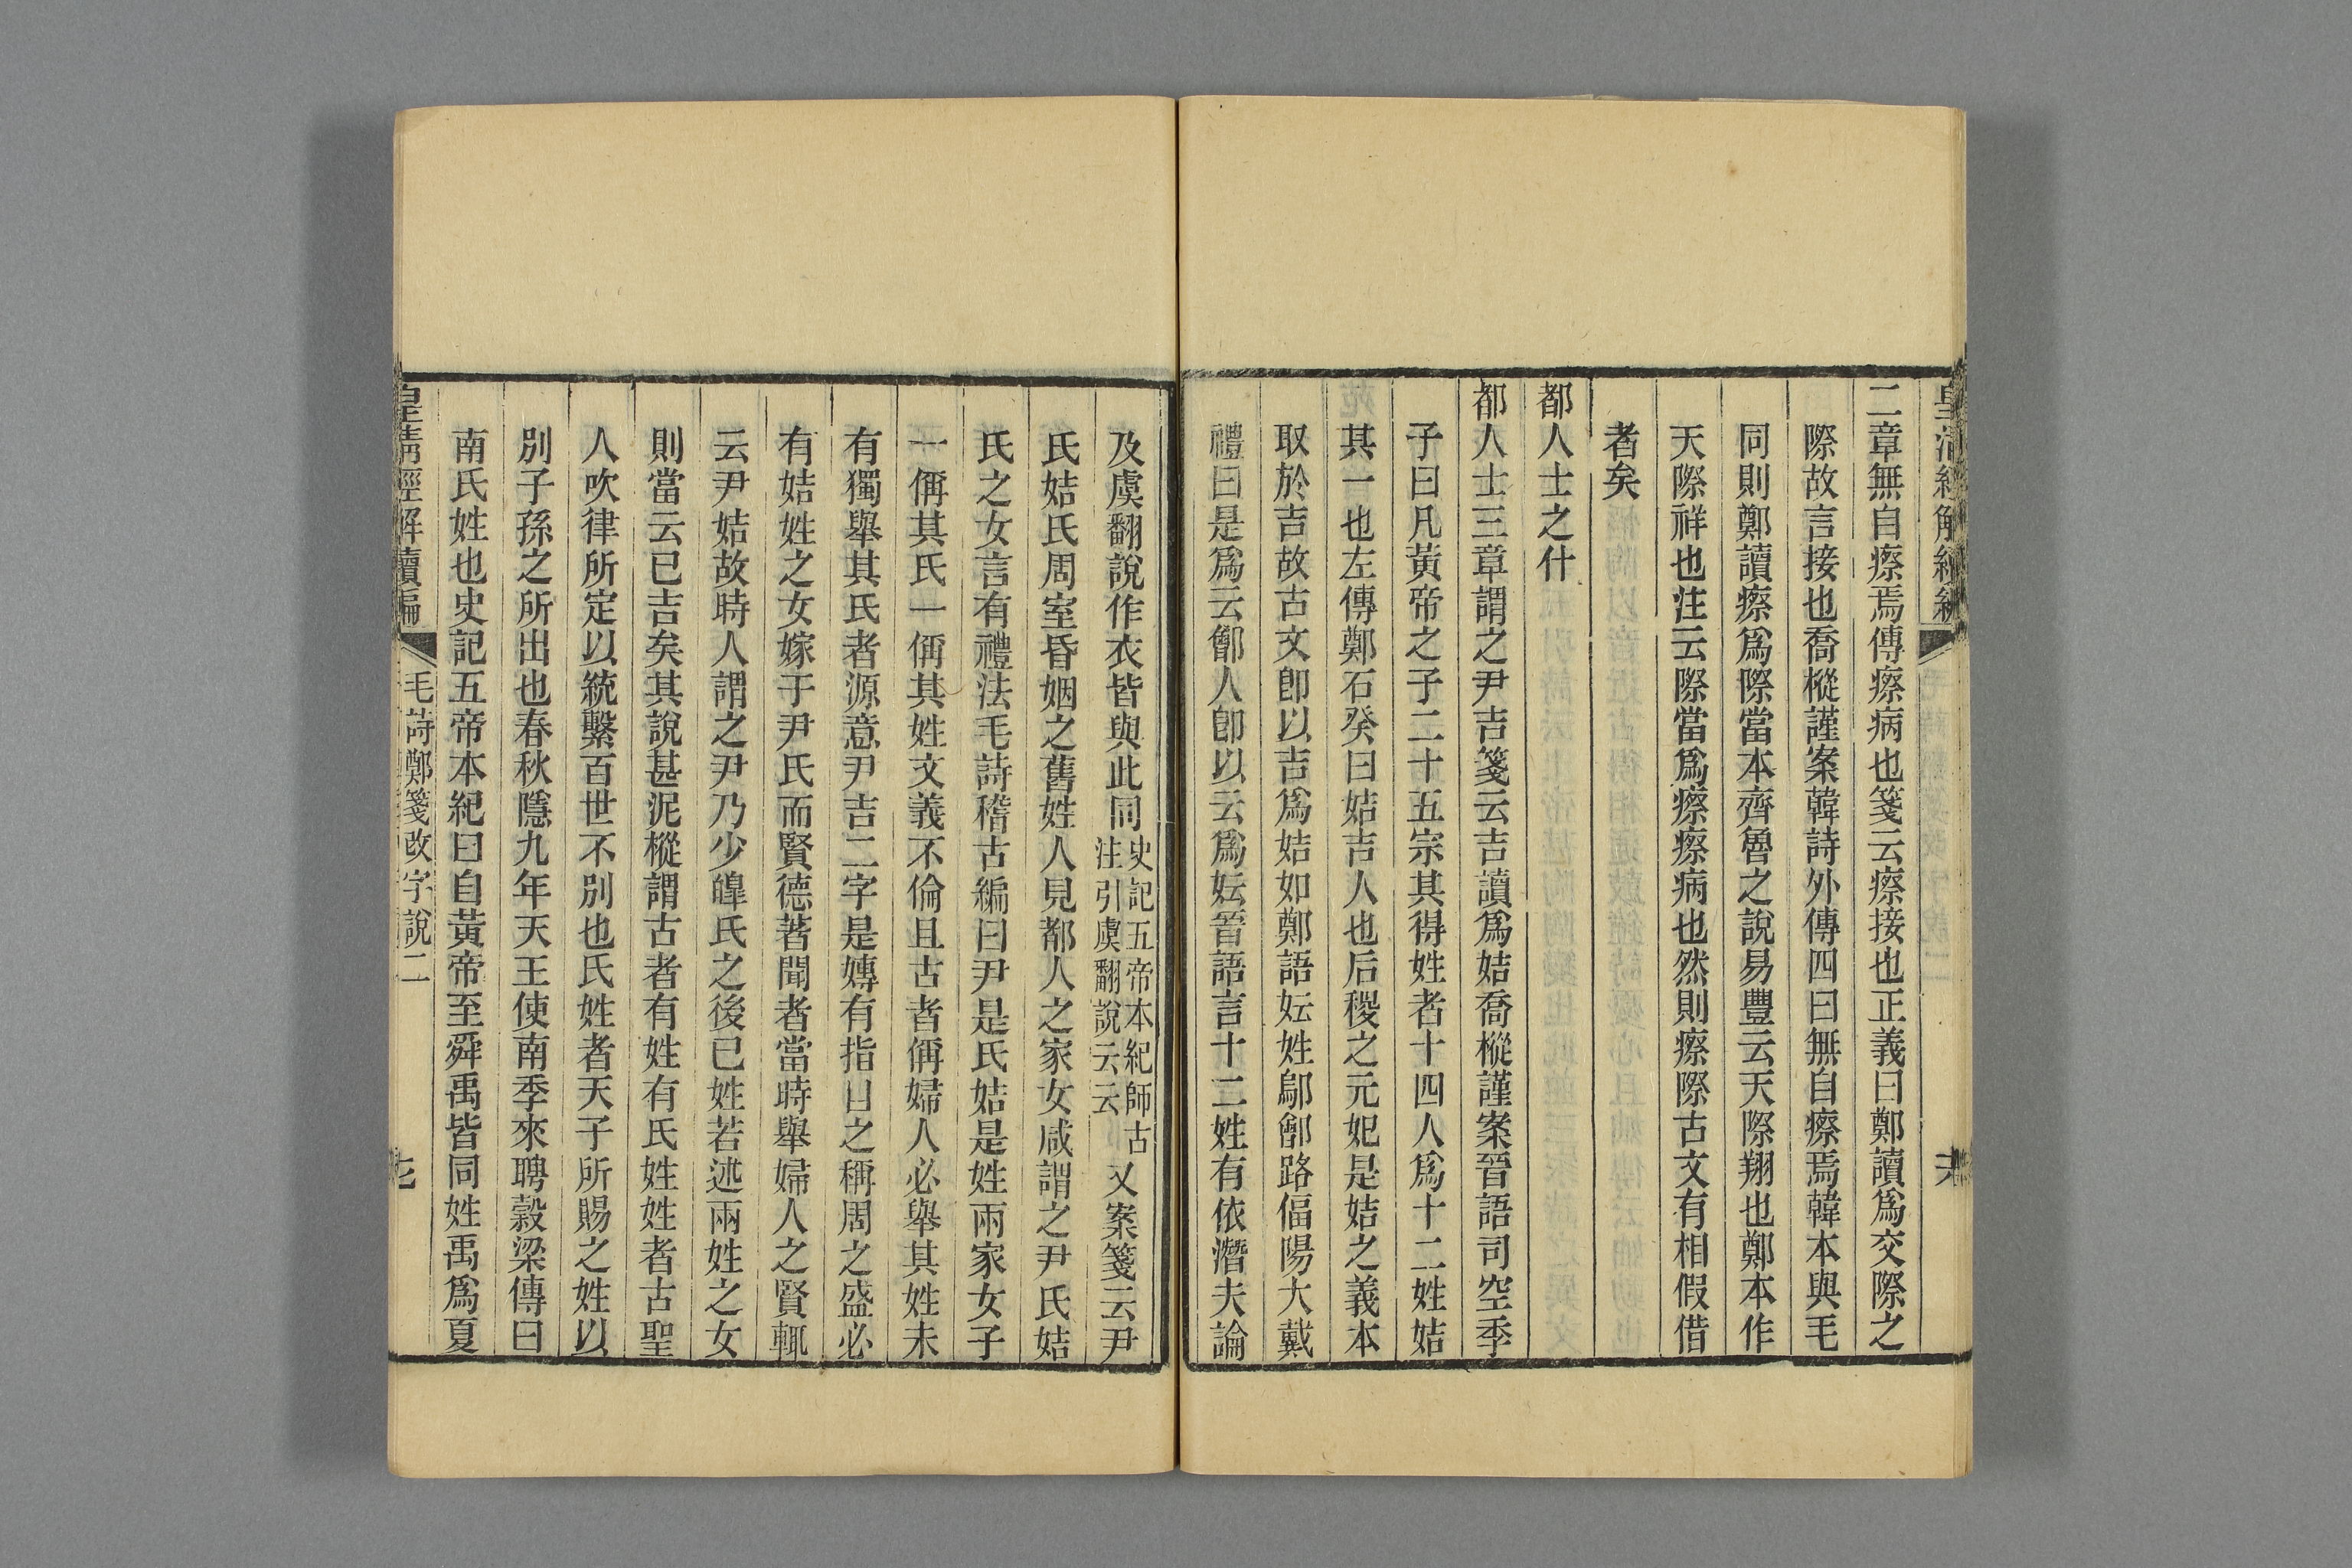 二章無自瘵焉傳瘵病也箋云瘵接也正義曰鄭讀爲交際之
際故言接也喬樅謹案韓詩外傳四曰無自瘵焉韓本與毛
同則鄭讀瘵爲際當本齊魯之說易豐云天際翔也鄭本作
天際祥也注云際當爲瘵瘵病也然則瘵際古文有相假借
者矣
都人士之什
都人士三章謂之尹吉箋云吉讀爲姞喬樅謹案晉語司空季
子曰凡黃帝之子二十五宗其得姓者十四人爲十二姓姞
其一也左傳鄭石癸曰姞吉人也后稷之元妃是姞之義本
取於吉故古文卽以吉爲姞如鄭語妘姓鄔鄶路偪陽大戴
禮曰是爲云鄶人卽以云爲妘晉語言十二姓有依潛夫論
及虞翻說作衣皆與此同史記五帝本紀師古注引虞翻說云云又案箋云尹
氏姞氏周室昏姻之舊姓人見都人之家女咸謂之尹氏姞
氏之女言有禮法毛詩稽古編曰尹是氏姞是姓兩家女子
一偁其氏一偁其姓文義不倫且古者偁婦人必舉其姓未
有獨舉其氏者源意尹吉二字是嫥有指目之稱周之盛必
有姞姓之女嫁于尹氏而賢德著聞者當時舉婦人之賢輒
云尹姞故時人謂之尹乃少皞氏之後已姓若述兩姓之女
則當云已吉矣其說甚泥樅謂古者有姓有氏姓姓者古聖
人吹律所定以統繫百世不別也氏姓者天子所賜之姓以
別子孫之所出也春秋隱九年天王使南季來聘穀梁傳曰
南氏姓也史記五帝本紀曰自黃帝至舜禹皆同姓禹爲夏
皇清經解續編
毛詩鄭箋改字說二